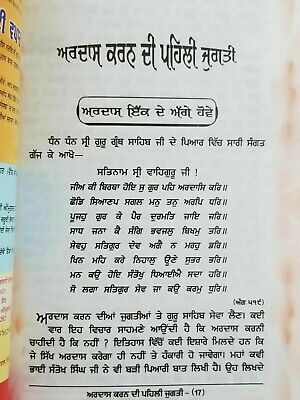 ਅਰਦਾਸ ਕਰਨ ਦੀ ਪਹਿਲੀ ਜੁਗਤੀ
ਅਰਦਾਸ ਇੱਕ ਦੇ ਅੱਗੇ ਹੋਵੇ
ਧੰਨ ਧੰਨ ਸ੍ਰੀ ਗੁਰੂ ਗ੍ਰੰਥ ਸਾਹਿਬ ਜੀ ਦੇ ਪਿਆਰ ਵਿੱਚ ਸਾਰੀ ਸੰਗਤ
ਗੱਜ ਕੇ ਆਖੋ—
ਸਤਿਨਾਮ ਸ੍ਰੀ ਵਾਹਿਗੁਰੂ ਜੀ !
ਜੀਅ ਕੀ ਬਿਰਥਾ ਹੋਇ ਸੁ ਗੁਰ ਪਹਿ ਅਰਦਾਸਿ ਕਰਿ॥
ਛੋਡਿ ਸਿਆਣਪ ਸਗਲ ਮਨੁ ਤਨੁ ਅਰਪਿ ਧਰਿ॥
ਪੂਜਹੁ ਗੁਰ ਕੇ ਪੈਰ ਦੁਰਮਤਿ ਜਾਇ ਜਰਿ॥
ਸਾਧ ਜਨਾ ਕੈ ਸੰਗਿ ਭਵਜਲੁ ਬਿਖਮੁ ਤਰਿ॥
ਸੇਵਹੁ ਸਤਿਗੁਰ ਦੇਵ ਅਗੈ ਨ ਮਰਹੁ ਡਰਿ॥
ਖਿਨ ਮਹਿ ਕਰੇ ਨਿਹਾਲੁ ਊਣੇ ਸੁਭਰ ਭਰਿ॥
ਮਨ ਕਉ ਹੋਇ ਸੰਤੋਖੁ ਧਿਆਈਐ ਸਦਾ ਹਰਿ॥
ਸੋ ਲਗਾ ਸਤਿਗੁਰ ਸੇਵ ਜਾ ਕਉ ਕਰਮੁ ਧੁਰਿ॥
(ਅੰਗ ੫੧੯)
ਅਰਦਾਸ ਕਰਨ ਦੀਆਂ ਜੁਗਤੀਆਂ ਤੇ ਗੁਰੂ ਸਾਹਿਬ ਸੇਵਾ ਲੈਣ। ਕਈ
ਵਾਰ ਇਹ ਵਿਚਾਰ ਸਾਹਮਣੇ ਆਉਂਦੀ ਹੈ ਕਿ ਅਰਦਾਸ ਕਰਨੀ
ਚਾਹੀਦੀ ਹੈ ਕਿ ਨਹੀਂ ? ਇਤਿਹਾਸ ਵਿੱਚੋਂ ਕਈ ਇਸ਼ਾਰੇ ਮਿਲਦੇ ਹਨ ਕਿ
ਜੇ ਸਿੱਖ ਅਰਦਾਸ ਕਰੇਗਾ ਹੀ ਨਹੀਂ ਤੇ ਹੰਕਾਰੀ ਹੋ ਜਾਵੇਗਾ। ਮਹਾਂ ਕਵੀ
ਭਾਈ ਸੰਤੋਖ ਸਿੰਘ ਜੀ ਨੇ ਵੀ ਬੜੀ ਪਿਆਰੀ ਬਾਤ ਲਿਖੀ ਹੈ। ਉਹ ਲਿਖਦੇ
ਅਰਦਾਸ ਕਰਨ ਦੀ ਪਹਿਲੀ ਜੁਗਤੀ - (17)